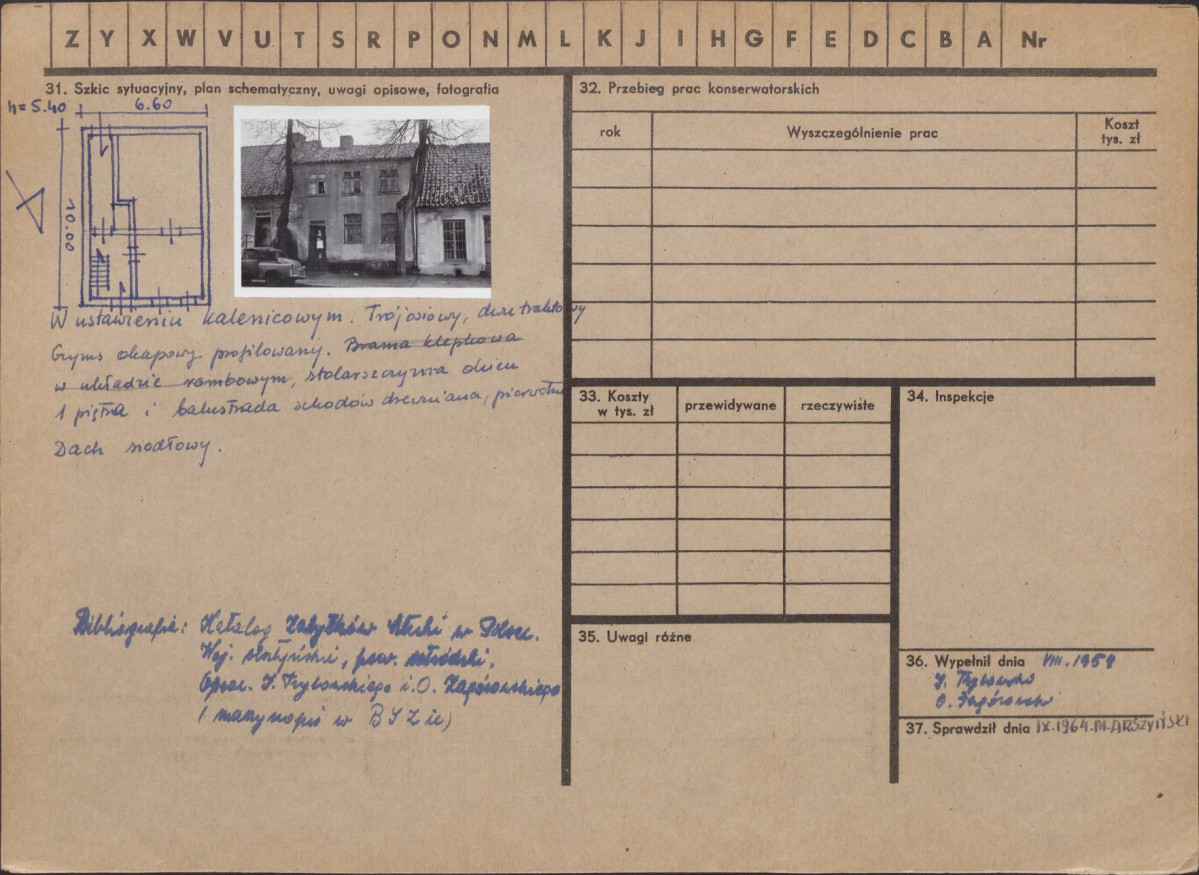 Z Y X W V U T S R P O N M L K J I H G F E D C B A Nr
31. Szkic sytuacyjny, plan schematyczny, uwagi opisowe, fotografia
h=5.40
6.60
10.00
W ustawieniu kalenicowym. Trójosiowy, dwutraktowy
Gzyms okapowy profilowany. Brama klepkowa
w układzie rombowym, stolarszczyzna okien
1 piętra i balustrada schodów drewniana, pierwotna
Dach siodłowy.
Bibliografia: Katalog Zabytków Sztuki w Polsce.
Woj. olsztyńskie, pow. ostródzki.
Oprac. J. Frybowskiego i O. Zagórowskiego
(maszynopis w
32. Przebieg prac konserwatorskich
rok
Wyszczególnienie prac
Koszt
tys. zł
33. Koszty
w tys. zł
przewidywane
rzeczywiste
34. Inspekcje
35. Uwagi różne
36. Wypełnił dnia VIII.1959
O. Zagórowski
37. Sprawdził dnia IX.1964. M. ARSZYŃSKI